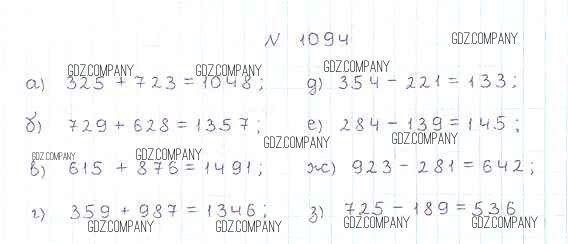 N 1094 GDZ.COMPANY
GDZ.COMPANY GDZ.COMPANY GDZ.COMPANY
а) 325 + 723 = 1048; д) 354 - 221 = 133;
б) 729 + 628 = 1357; е) 284 - 139 = 145;
GDZ.COMPANY GDZ.COMPANY
GDZ.COMPANY GDZ.COMPANY
в) 615 + 876 = 1491; ж) 923 - 281 = 642;
г) 359 + 987 = 1346; з) 725 - 189 = 536
GDZ.COMPANY GDZ.COMPANY GDZ.COMPANY GDZ.COMPANY